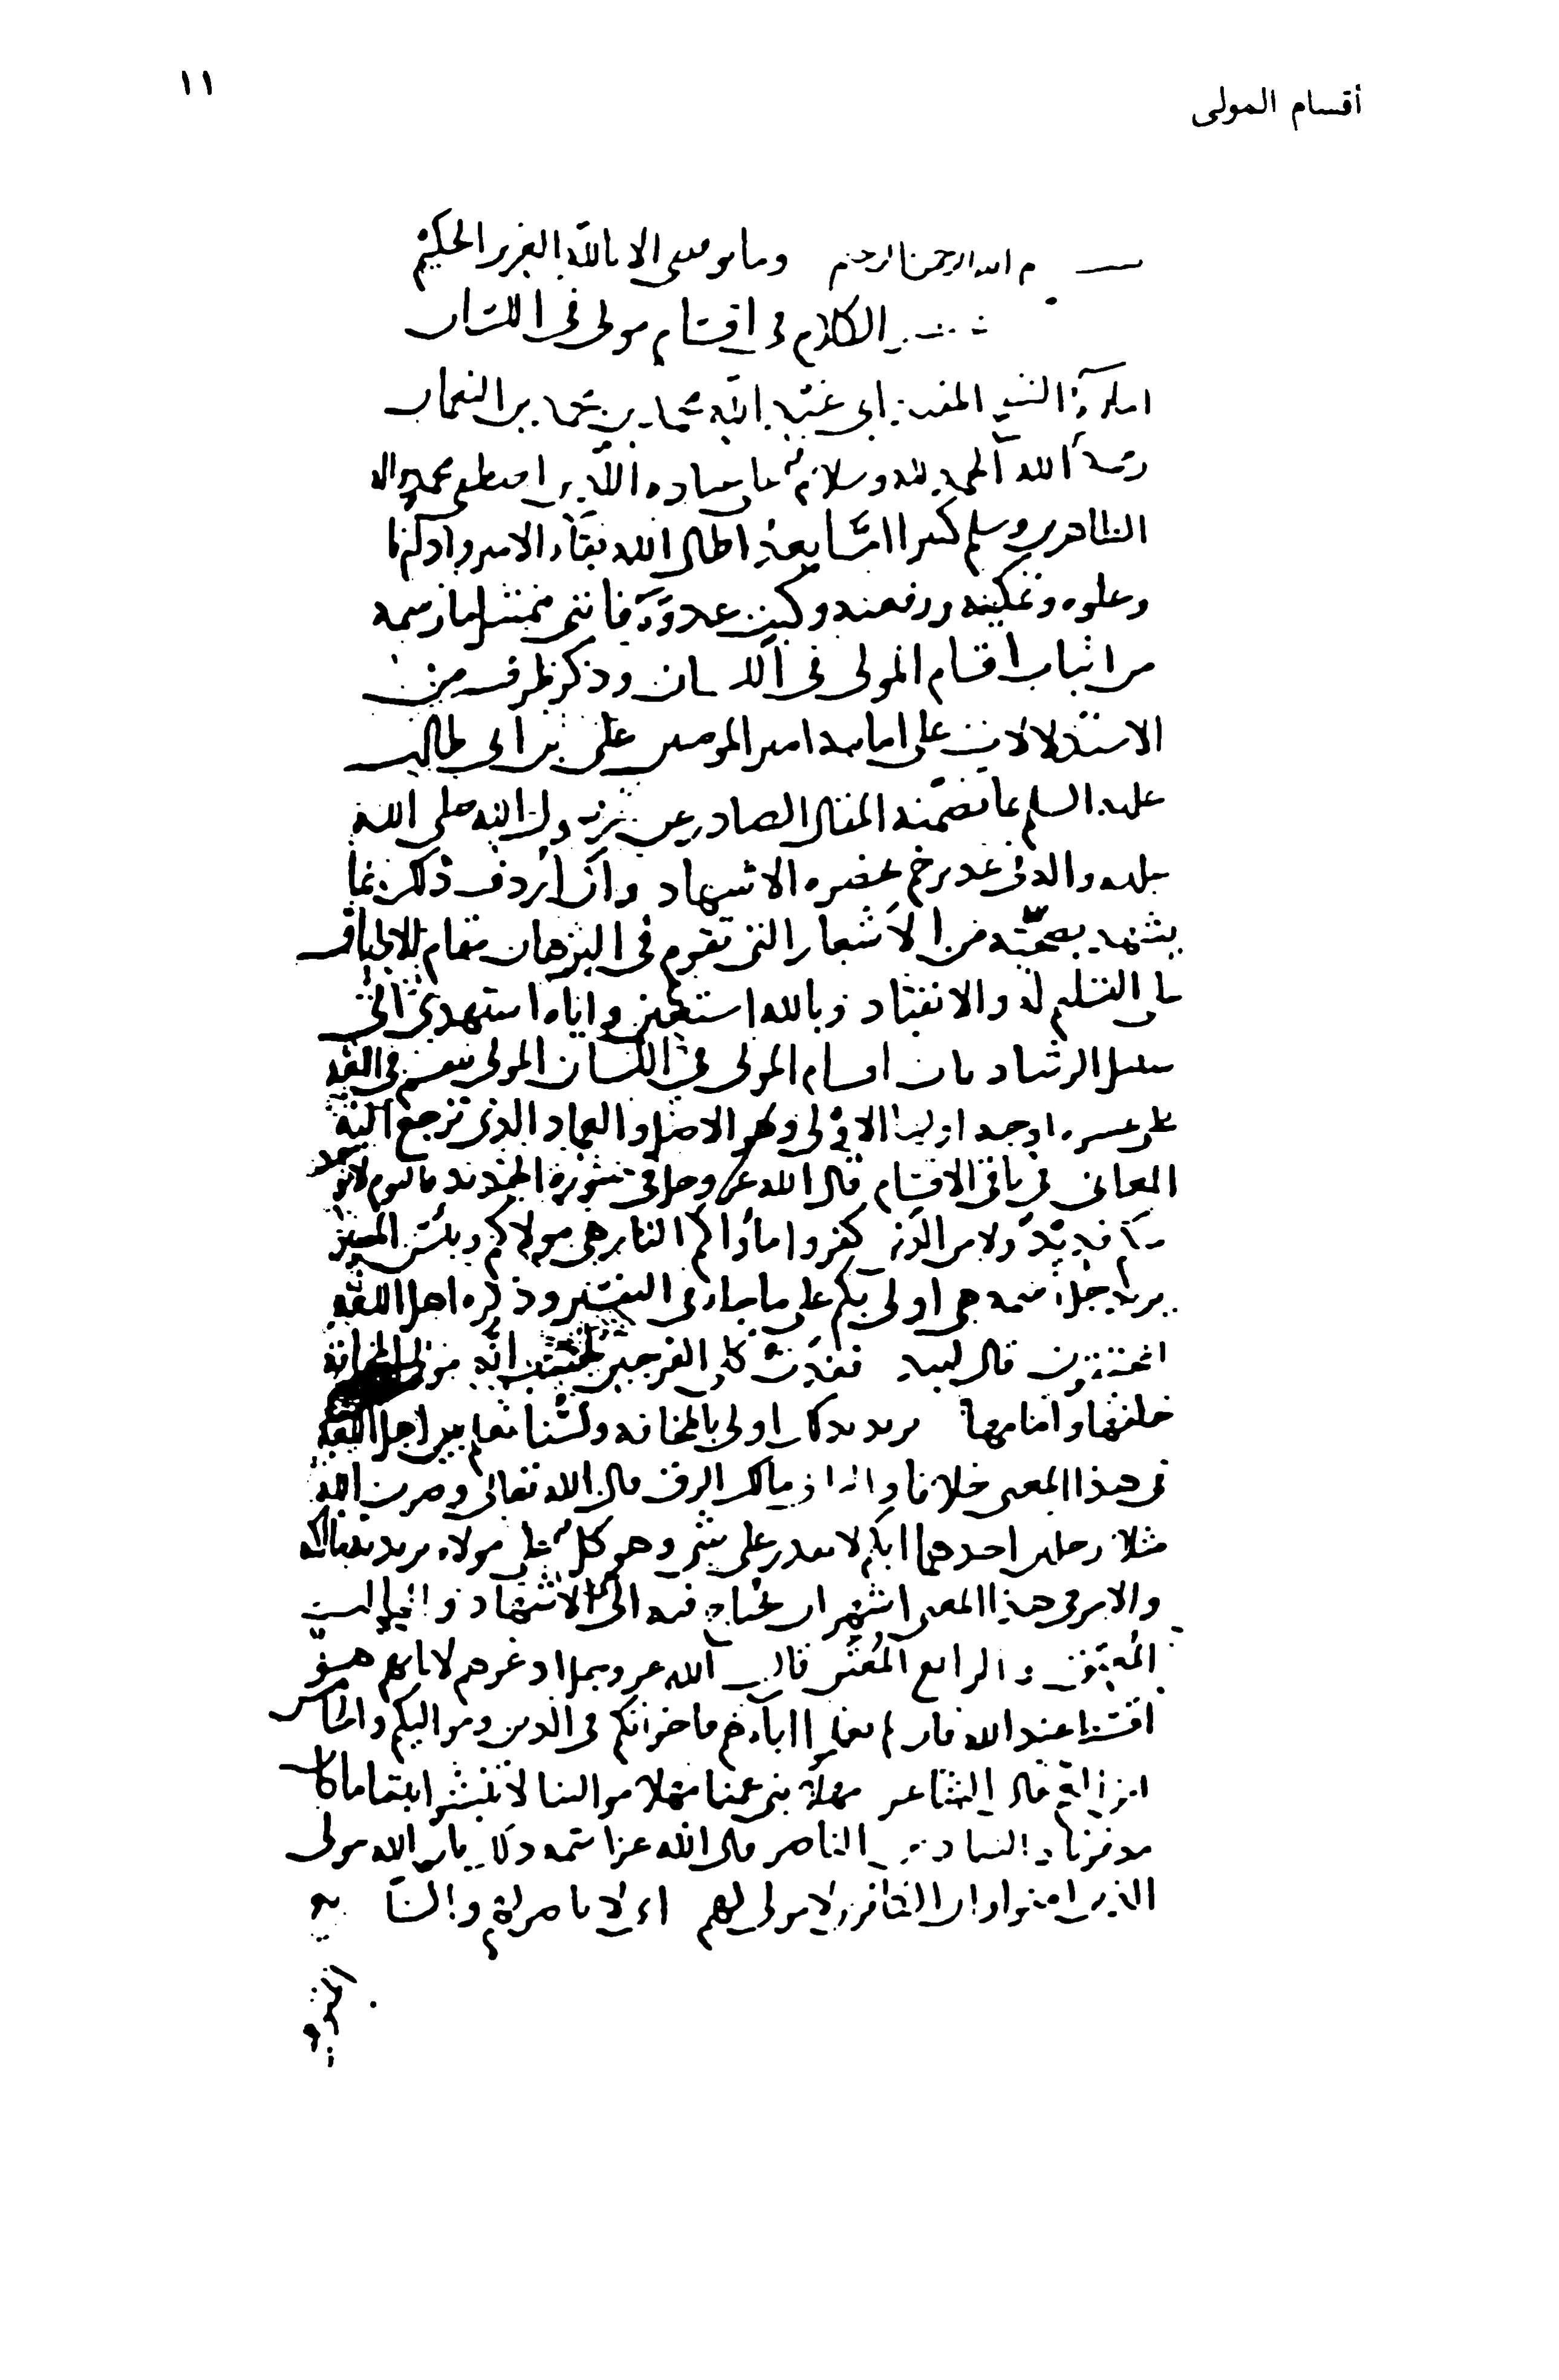 أقسام المولى
١١
بسم الله الرحمن الرحيم وما توفيقي الا بالله العزيز الحكيم
الكلام في اقسام مولى في اللسان
املاء الشيخ المفيد ابي عبد الله محمد بن محمد بن النعمان
رحمه الله الحمد لله وسلام على عباده الذين اصطفى محمد واله
الطاهرين وسلم كثيرا اما بعد اطال الله بقاء الامير وادام
وعلوه وتمكينه ورفعته وكبت عدوه فانني ممتثل لما رسمه
من اثبات اقسام المولى في اللسان وذكر طرف من
الاستدلالات على امامة امير المومنين علي بن ابي طالب
عليه السلم بما تضمنه المقال الصادر عن رسول الله صلى الله
عليه واله في غدير خم بحضرة الاشهاد وان اردف ذكر ما
يشهد بصحته من الاشعار التي تقوم في البرهان مقام الاطباق
على التسليم له والانقياد وبالله استعين واياه استهدي الى
سبيل الرشاد بيان اقسام المولى في اللسان المولى ينقسم في اللغة
على عشرة اوجه اولها الاولى وهو الاصل والعماد الذي ترجع اليه
المعاني في باقي الاقسام قال الله عز وجل في سورة الحديد فاليوم لا يوخذ
منكم فدية ولا من الذين كفروا ماواكم النار هي مولاكم وبئس المصير
يريد جل اسمه هي اولى بكم على ما جاء في التفسير وذكره اهل اللغة
المحققون قال لبيد فغدت كلا الفرجين تحسب انه مولى المخافة
خلفها وامامها يريد به كان اولى بالمخافة ولسنا نعلم بين اهل اللغة
في هذا المعنى خلافا والثاني مالك الرق قال الله تعالى وضرب الله
مثلا رجلين احدهما ابكم لا يقدر على شي وهو كل على مولاه يريد به مالكه
والامر في هذا المعنى اشهر ان يحتاج فيه الى الاستشهاد والثالث
المعتق والرابع المعتق قال الله عز وجل ادعوهم لابايهم هو
اقسط عند الله فان لم تعلموا اباءهم فاخوانكم في الدين ومواليكم والخامس
ابن العم قال الشاعر مهلا بني عمنا مهلا موالينا لا تنبشوا بيننا ما كان
مدفونا والسادس الناصر قال الله عز اسمه ذلك بان الله مولى
الذين امنوا وان الكافرين لا مولى لهم اي لا ناصر لهم والسابع